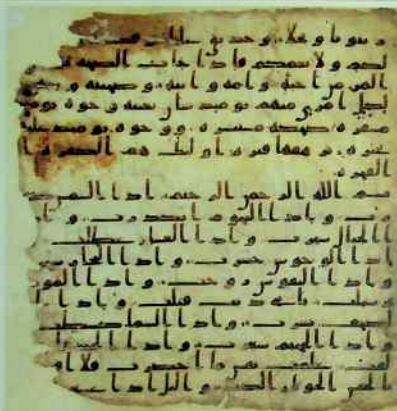 وزيتونا ونخلا وحدايق غلبا وفكهه
لكم ولانعمكم فاذا جات الصخه
المر من اخيه وامه وابيه وصحبته وبنيه
لكل امرى منهم يوميد شان يغنيه وجوه يوميد
مسفره ضحكه مستبشره ووجوه يوميد عليها
غبره ترهقها قتره اوليك هم الكفره ا
لفجره
بسم الله الرحمن الرحيم اذا الشمس كو
رت واذا النجوم انكدرت واذا
الجبال سيرت واذا العشار عطلت
اذا الوحوش حشرت واذا البحار
واذا النفوس زوجت واذا المو
سيلت باي ذنب قتلت واذا ا
لصحف نشرت واذا السما كشطت
واذا الجحيم سعرت واذا الجنه ا
زلفت علمت نفس ما احضرت فلا ا
بالخنس الجوار الكنس واليل اذا